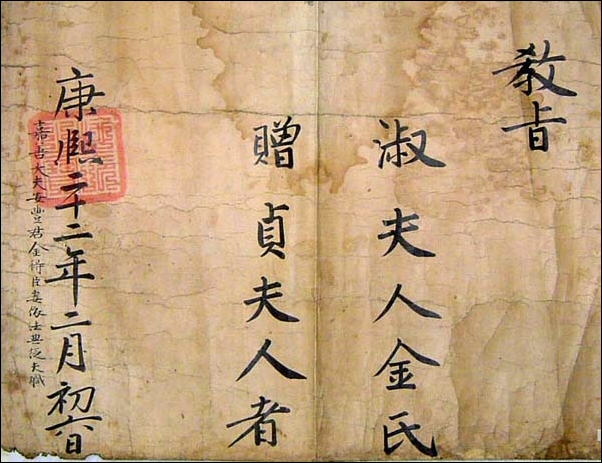 敎旨
淑夫人金氏
贈貞夫人者
康熙二十二年二月初六日
嘉善大夫安豊君金得臣妻依法典從夫職